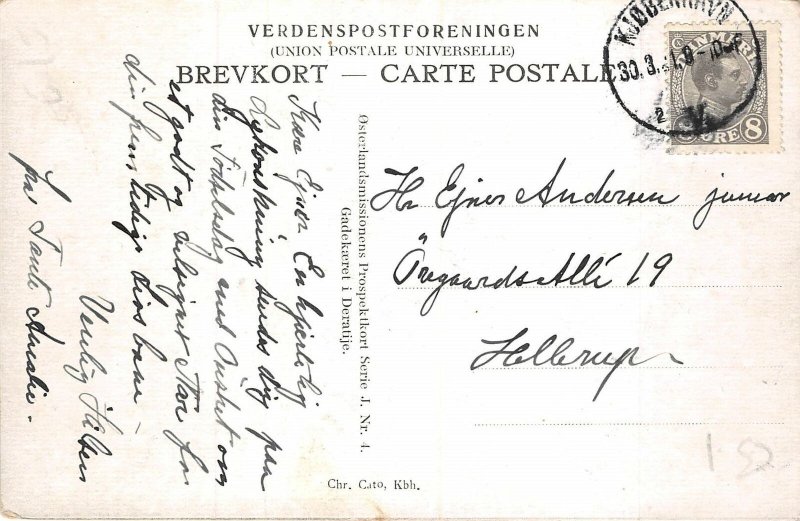 VERDENSPOSTFORENINGEN
(UNION POSTALE UNIVERSELLE)
BREVKORT — CARTE POSTALE
KJØBENHAVN
30.3. 8-10
2
V.
DANMARK
8 ØRE 8
Kære Ejner En hjertelig
Lykønskning sendes dig paa
din Fødselsdag med Ønsket om
et godt og velsignet Aar for
dig
Venlig Hilsen
fra Tante Amalie.
Østerlandsmissionens Prospektkort Serie J. Nr. 4.
Gadekæret i Deratije.
Hr Ejner Andersen junior
Øregaards Allé 19
Hellerup
Chr. Cato, Kbh.
1.52